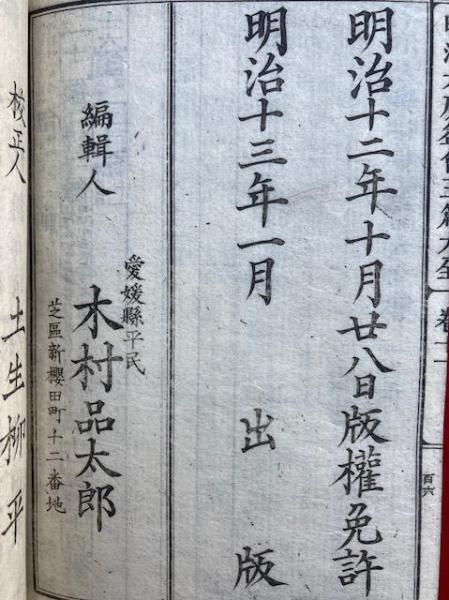 明治十二年十月廿八日版權免許
明治十三年一月 出版
編輯人
愛媛縣平民
木村品太郎
芝區新櫻田町十二番地
校正人 土生柳平